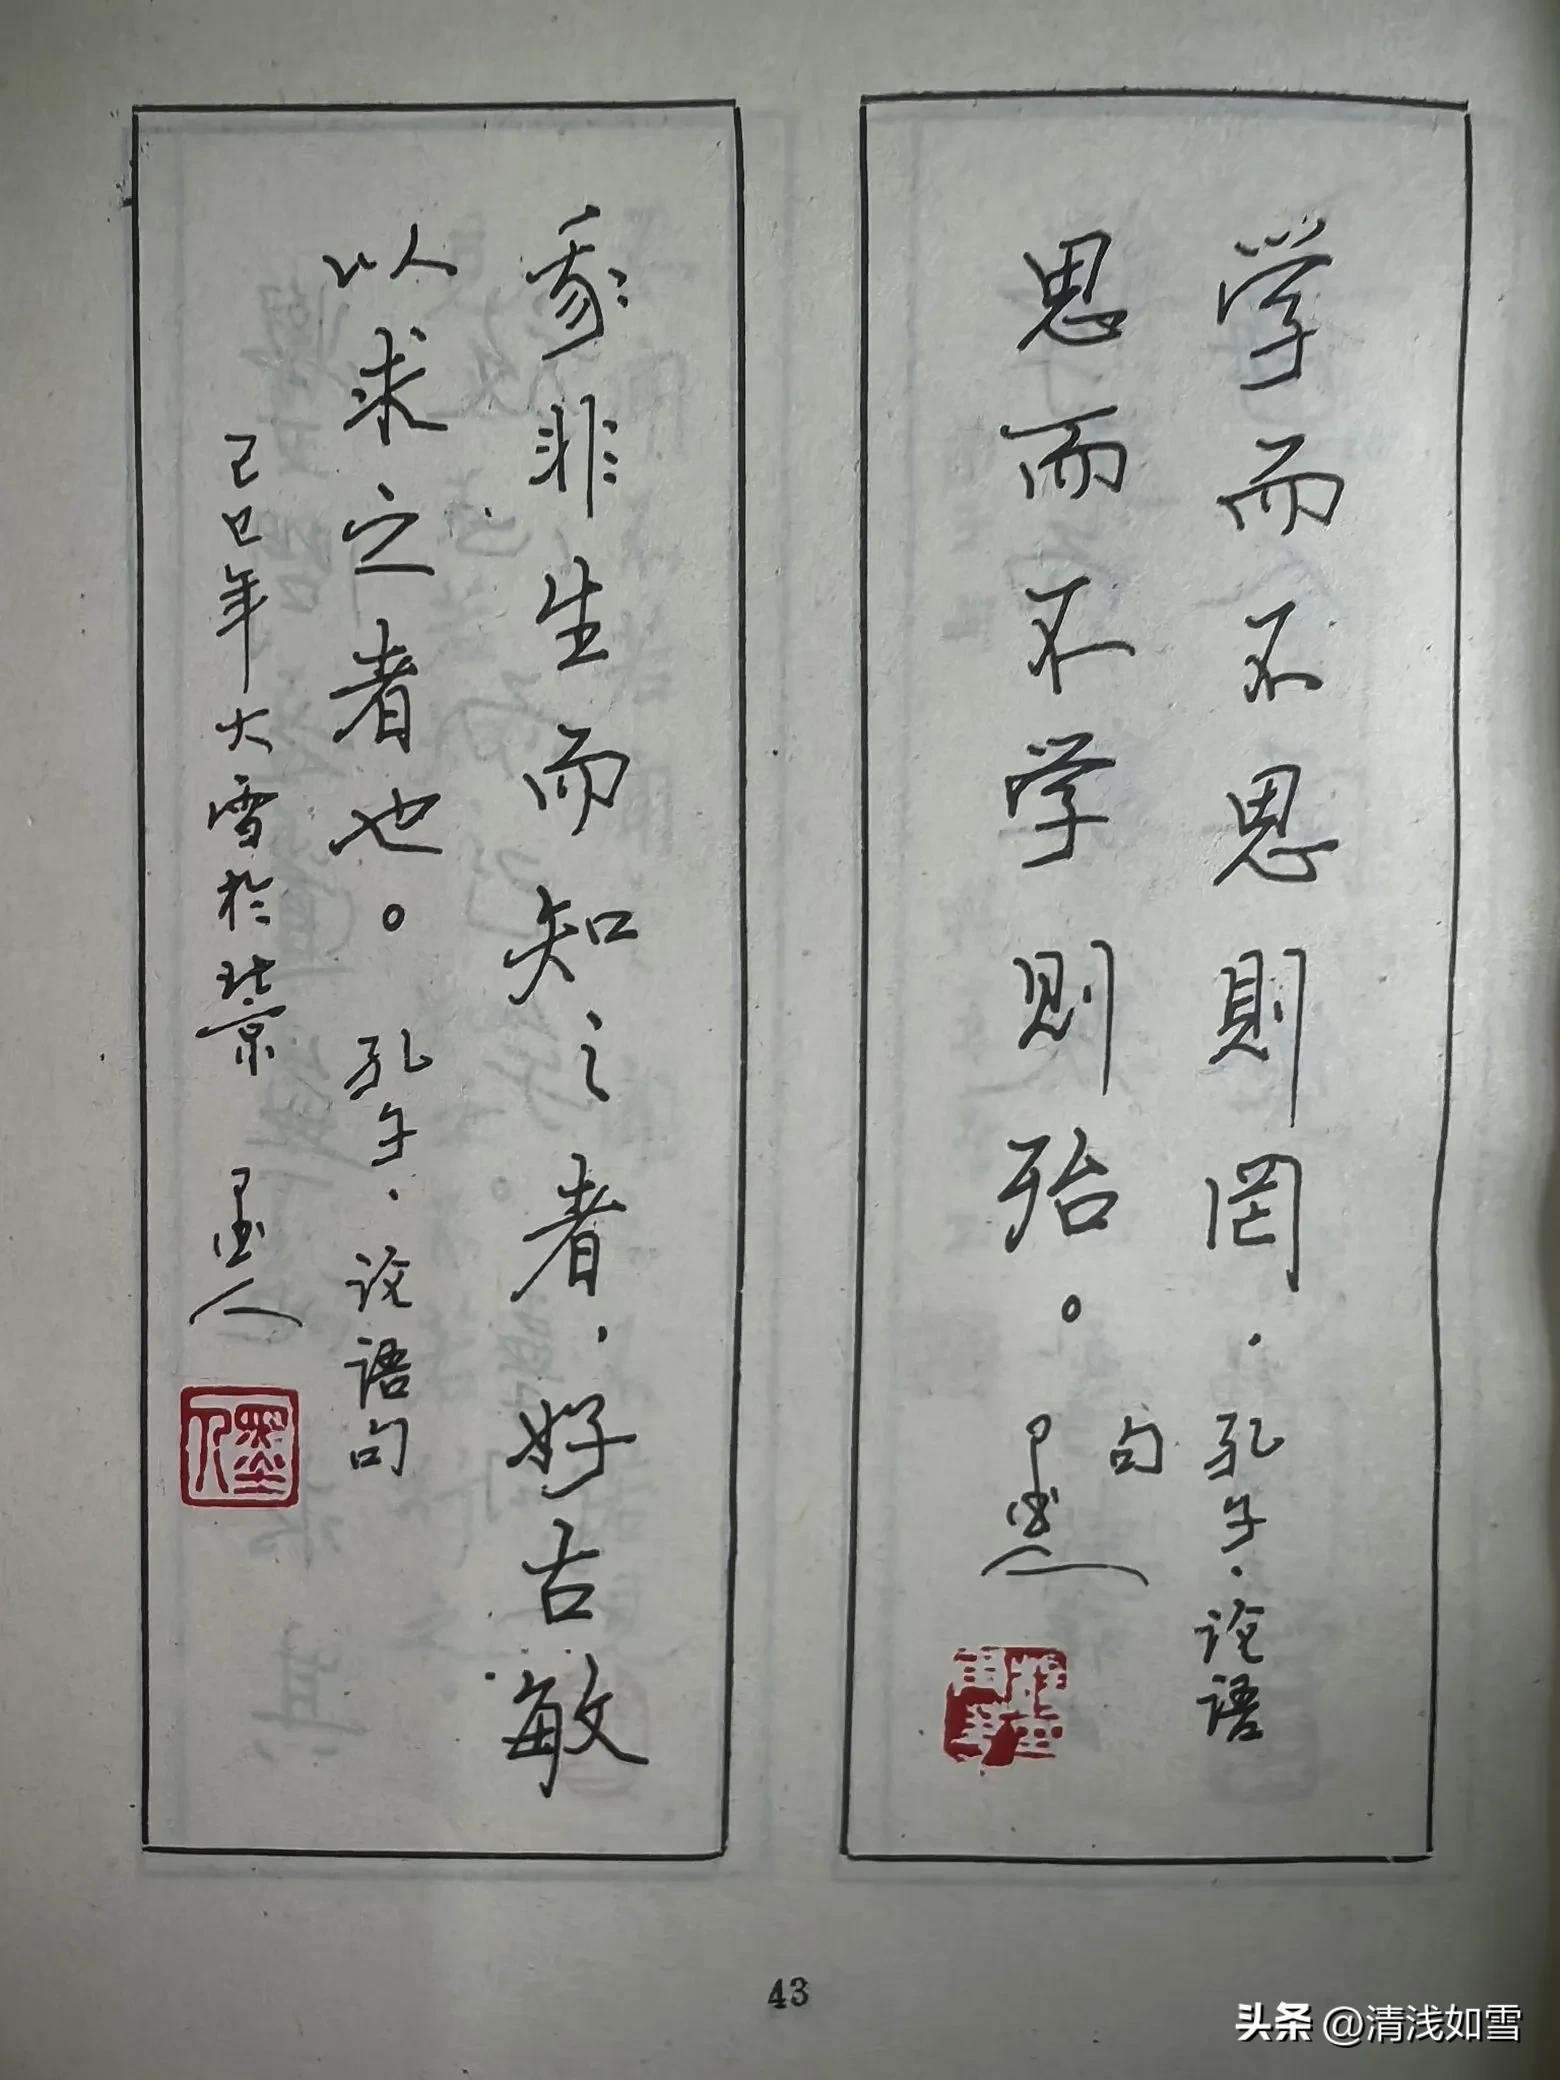 学而不思則罔，孔子·论语
句
思而不学则殆。
墨人
我非生而知之者，好古敏
以求之者也。 孔子·论语句
己巳年大雪於北京 墨人
墨人
43
头条 @清浅如雪